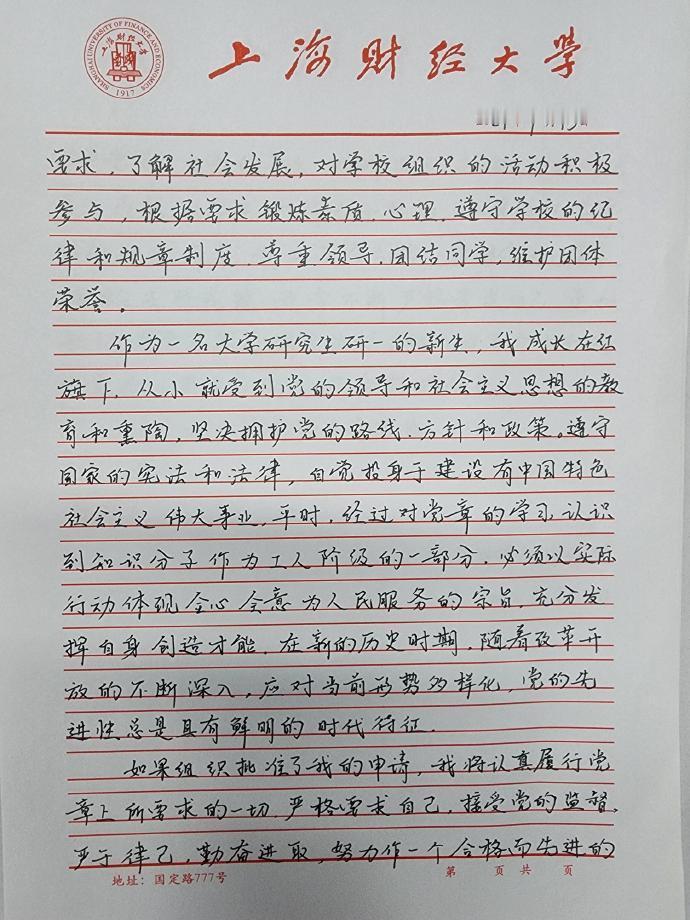 SHANGHAI UNIVERSITY OF FINANCE AND ECONOMICS
上海财经大学
1917
上海财经大学
要求，了解社会发展，对学校组织的活动积极
参与，根据要求锻炼素质、心理，遵守学校的纪
律和规章制度，尊重领导，团结同学，维护团体
荣誉。
作为一名大学研究生研一的新生，我成长在红
旗下，从小就受到党的领导和社会主义思想的教
育和熏陶，坚决拥护党的路线、方针和政策。遵守
国家的宪法和法律，自觉投身于建设有中国特色
社会主义伟大事业，平时，经过对党章的学习，认识
到知识分子作为工人阶级的一部分，必须以实际
行动体现全心全意为人民服务的宗旨，充分发
挥自身创造才能，在新的历史时期，随着改革开
放的不断深入，应对当前形势多样化，党的先
进性总是具有鲜明的时代特征.
如果组织批准了我的申请，我将认真履行党
章上所要求的一切，严格要求自己，接受党的监督，
严于律己，勤奋进取，努力作一个合格而先进的
地址：国定路777号 第 页 共 页